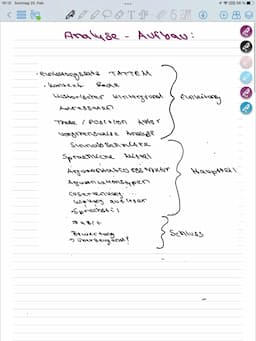 Analyse - Aufbau:
· Einleitungssatz TATTEM
· Kontext Rede
Historischer Hintergrund
Adressaten
These / Position Autor
Vorgehensweise Analyse
Einleitung
Sinnabschnitte
Sprachliche Mittel
Argumentationsstruktur
Argumentationstypen
Wirkung auf Leser
Sprachstil
Hauptteil
Fazit
Bewertung
→ überzeugend?
Schluss